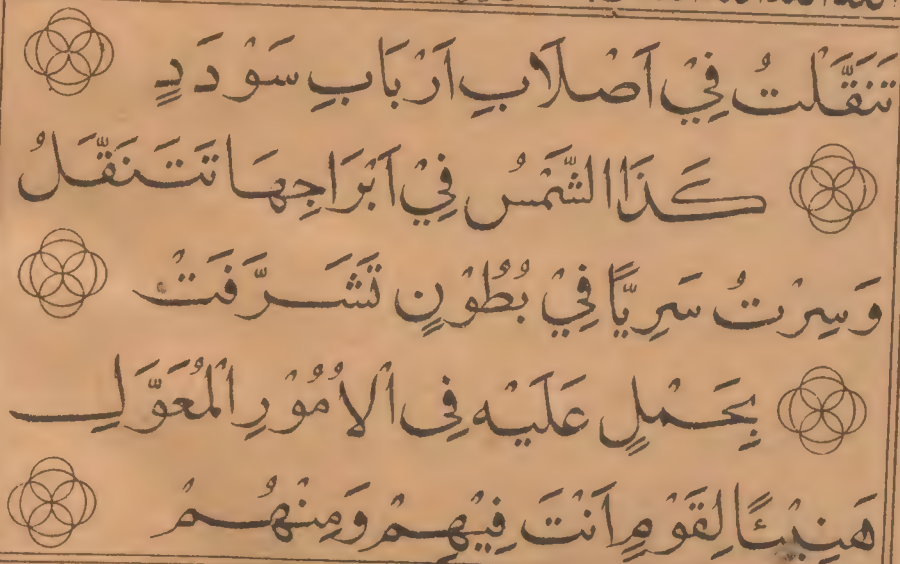 تَنَقَّلْتُ فِيْ اَصْلَابِ اَرْبَابِ سَوْدَدٍ
كَذَا الشَّمْسُ فِيْ اَبْرَاجِهَا تَتَنَقَّلُ
وَسِرْتُ سَرِيًّا فِيْ بُطُوْنٍ تَشَرَّفَتْ
بِحَمْلٍ عَلَيْهِ فِى الْاُمُوْرِ الْمُعَوَّلِ
هَنِيْئًا لِقَوْمٍ اَنْتَ فِيْهِمْ وَمِنْهُمْ